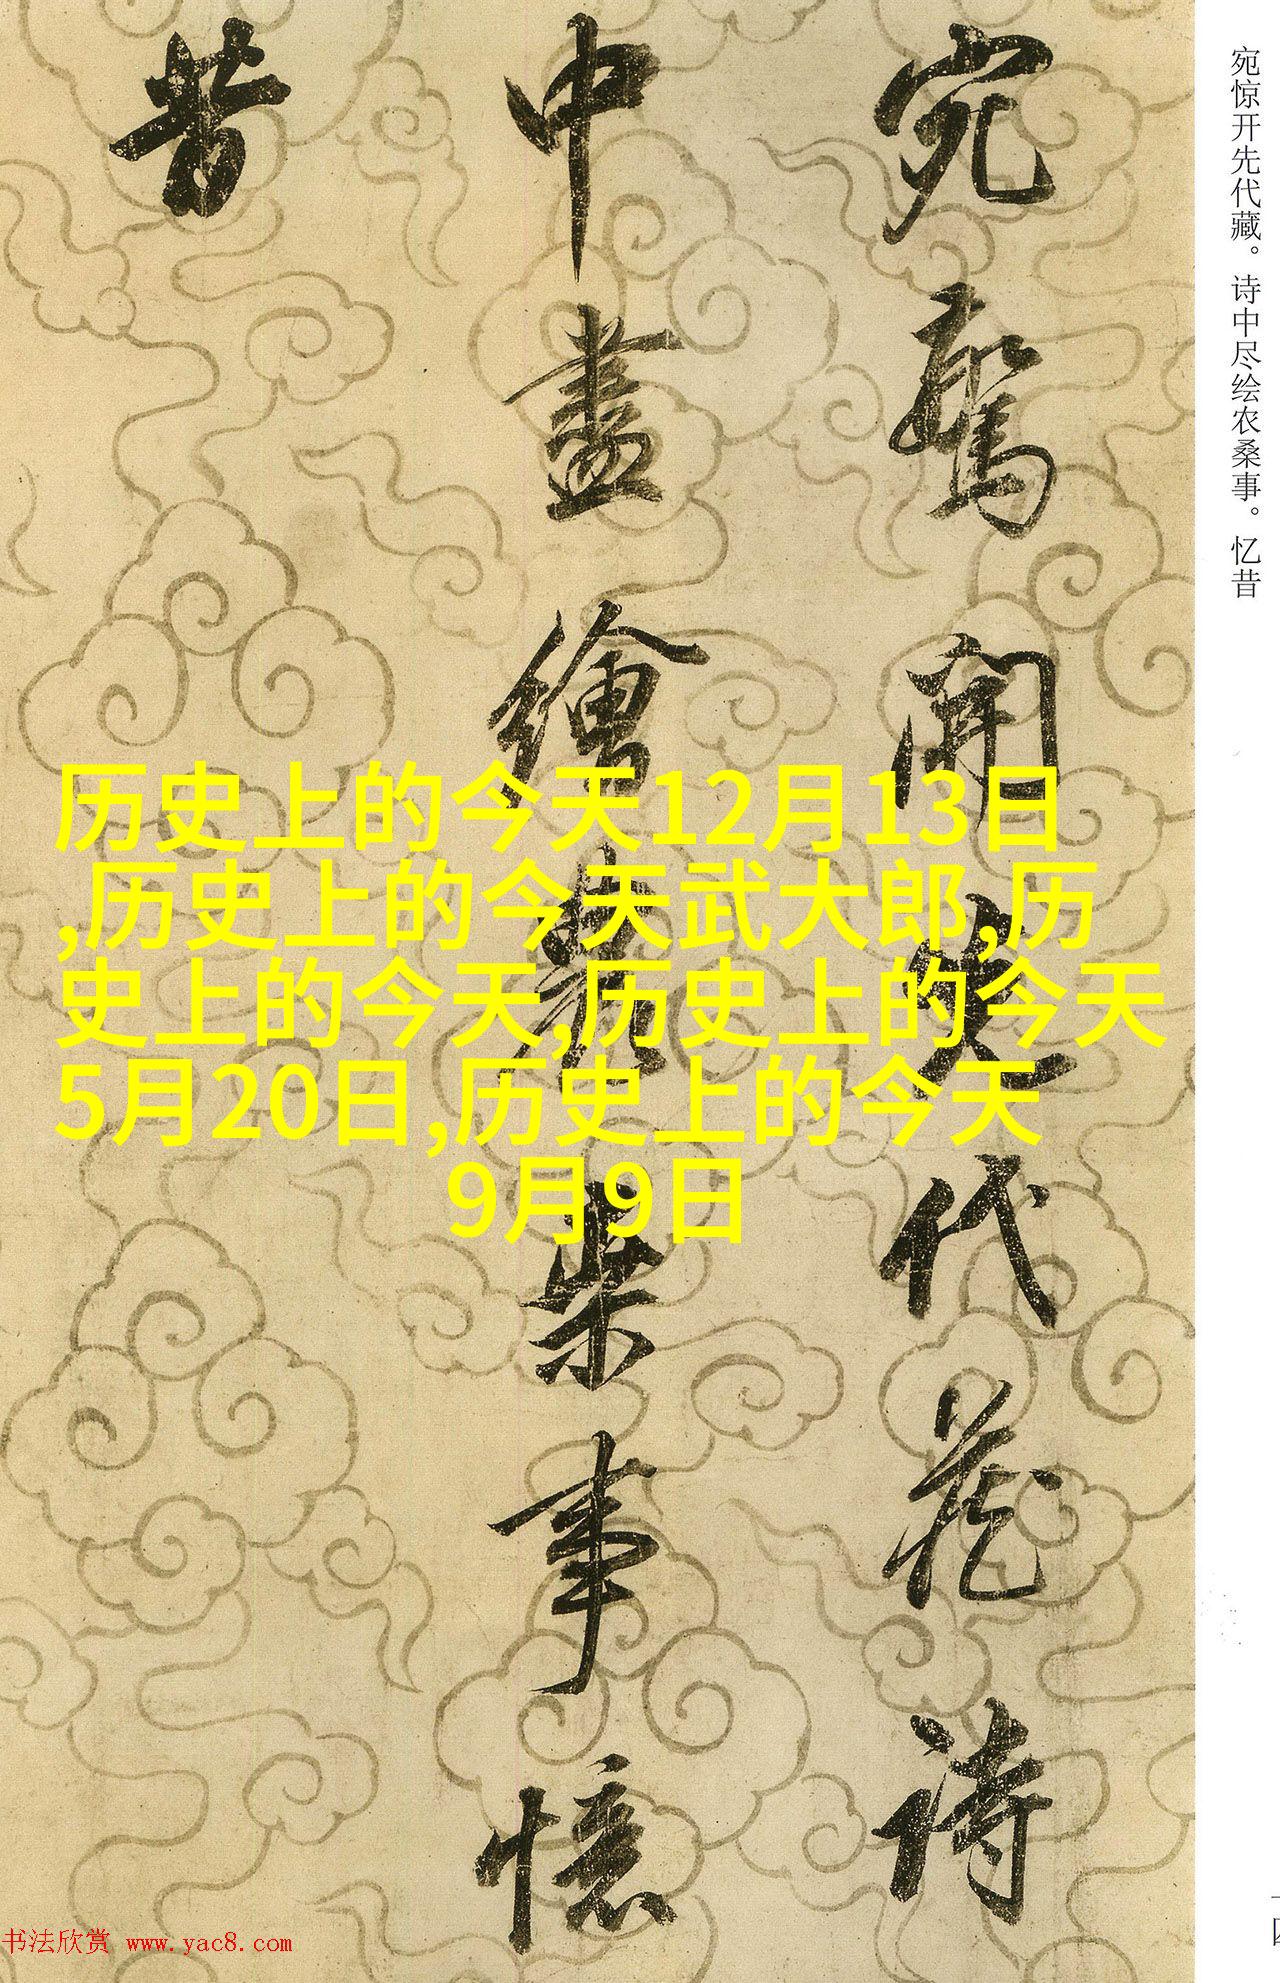 宛驚開先代藏詩
中盡繪農桒事憶
昔
宛惊开先代藏。诗中尽绘农桑事。忆昔
历史上的今天12月13日
,历史上的今天武大郎,历
史上的今天,历史上的今天
5月20日,历史上的今天
9月9日
书法欣赏 www.yac8.com